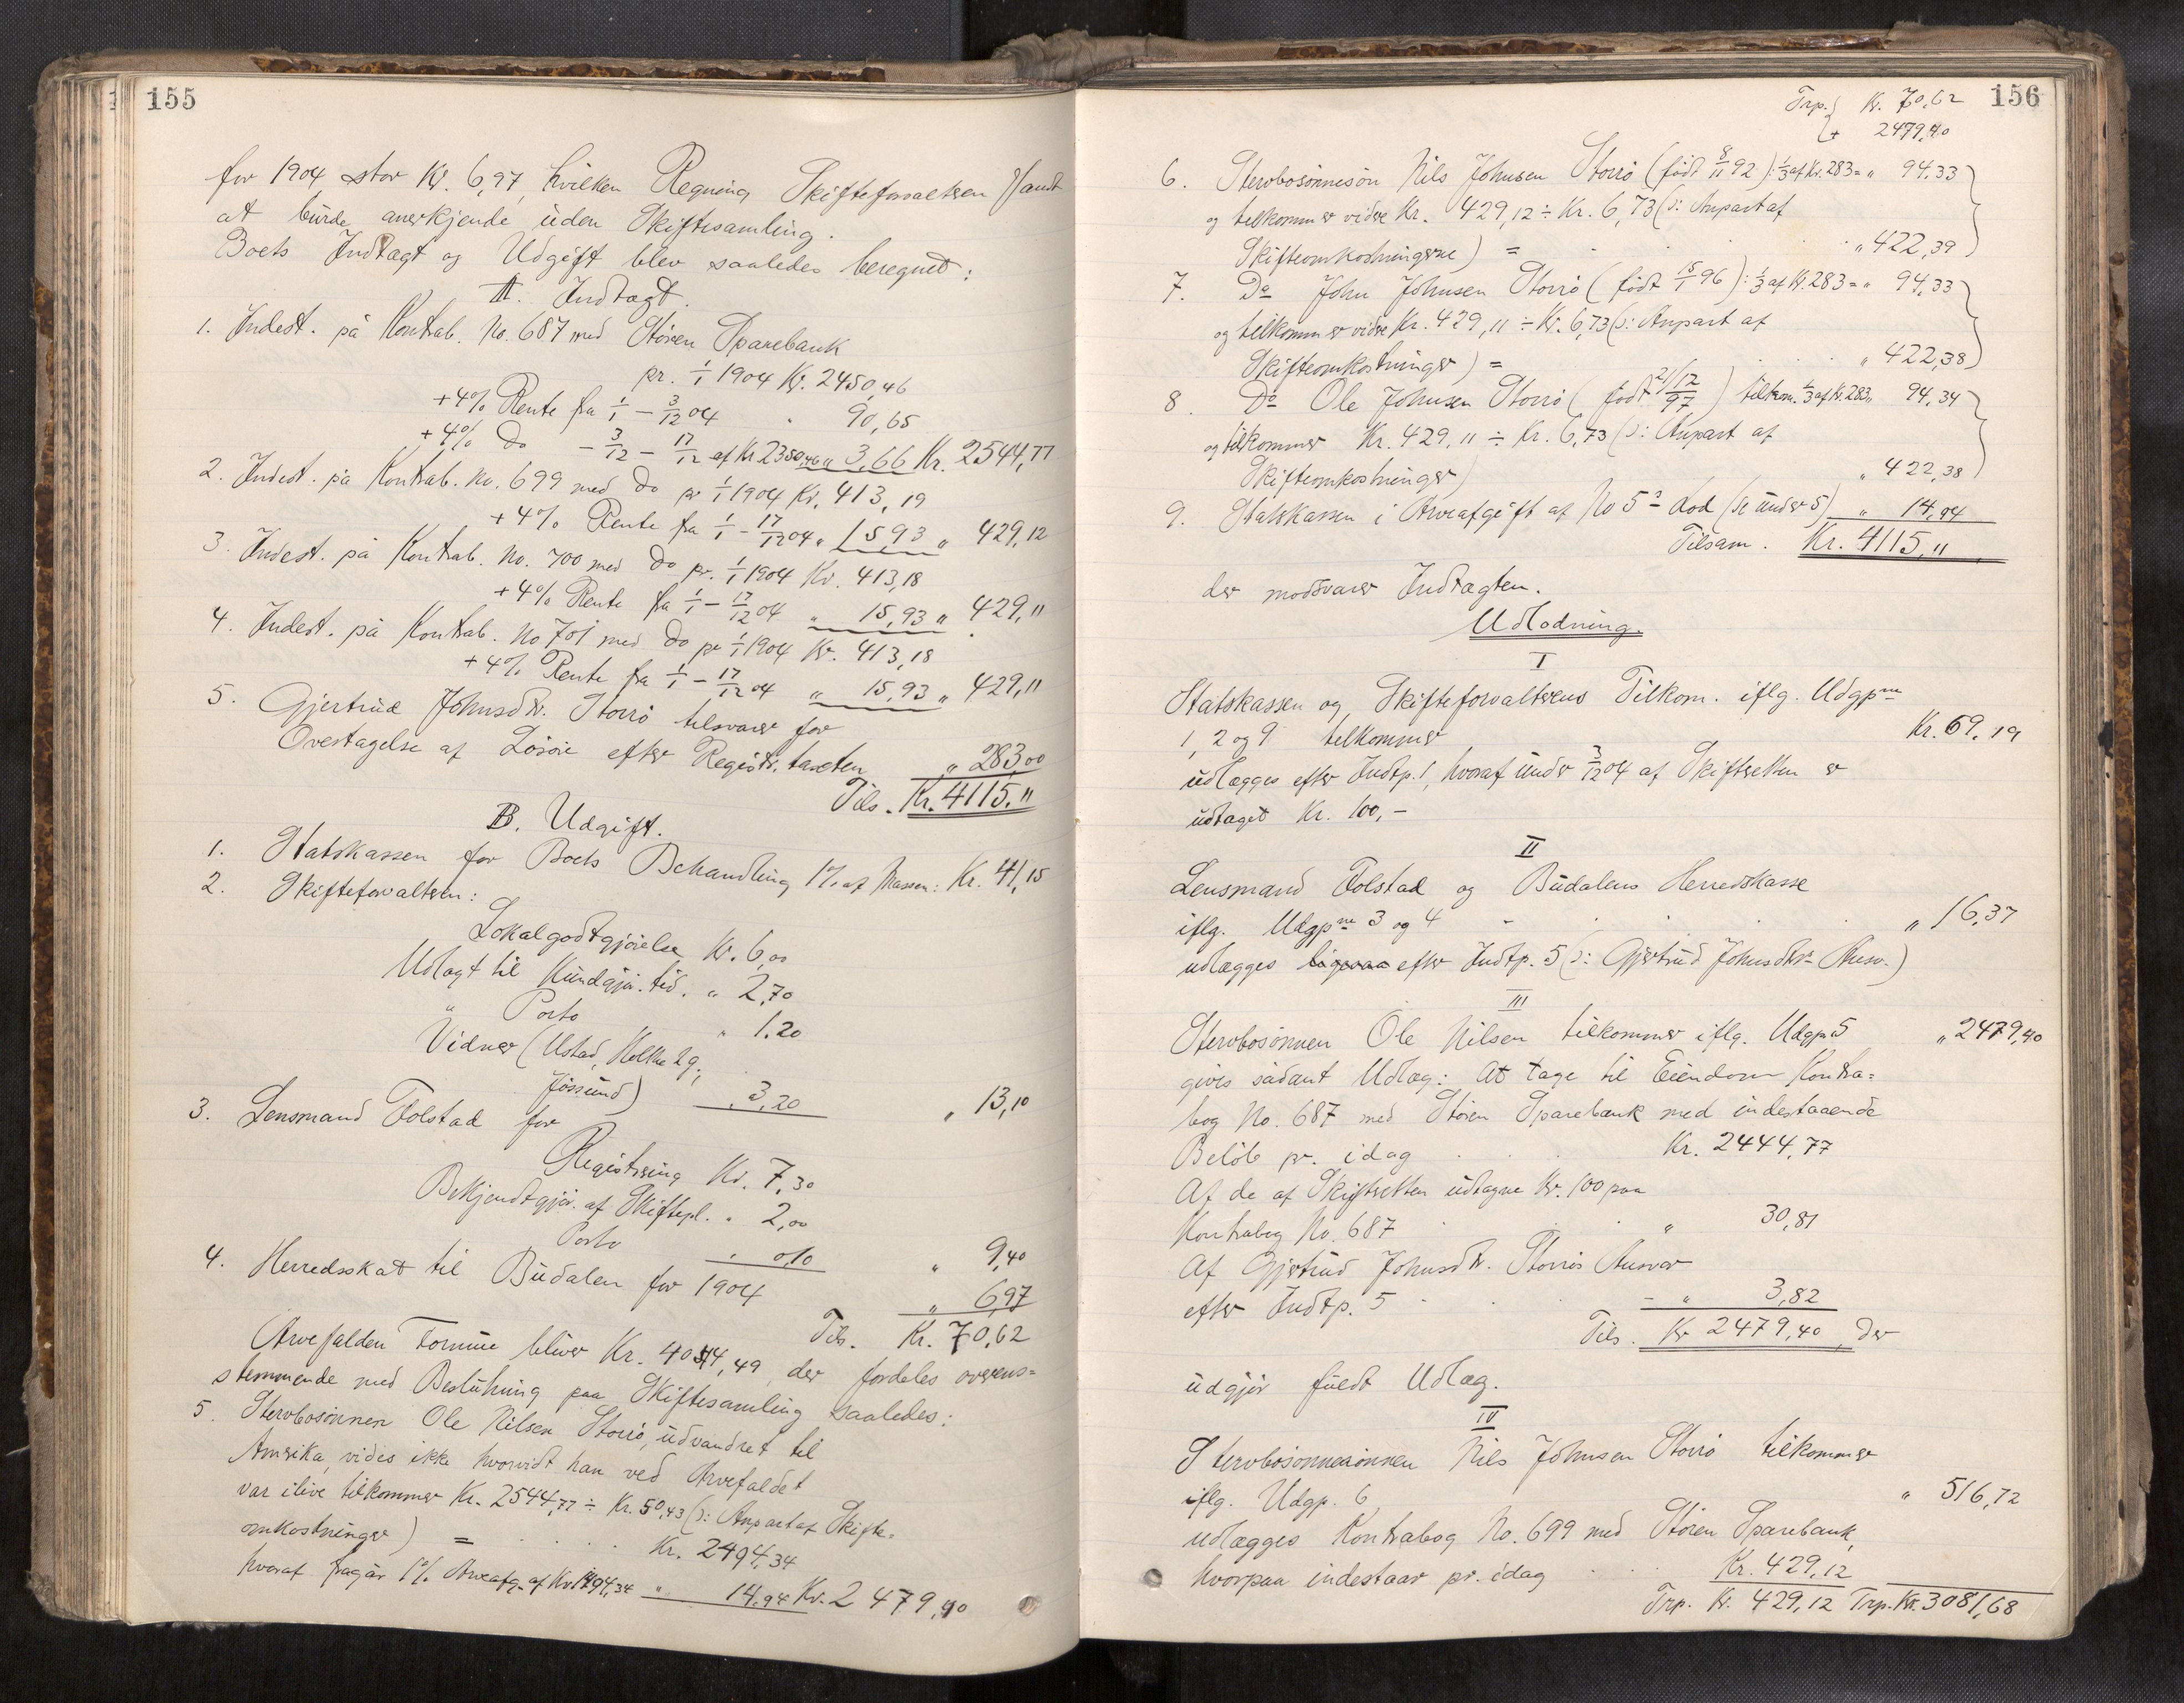 155
for 1904 stor Kr. 6,97, hvilken Regning Skifteforvalteren fandt
at burde anerkjende uden Skiftesamling.
Boets Indtægt og Udgift blev saaledes beregnet:
A. Indtægt.
1. Indest. på Kontrab. No. 687 med Støren Sparebank
pr. 1/1 1904 Kr. 2450,46
+ 4% Rente fra 1/1 - 3/12 04 " 90,65
+ 4% Do - 3/12 - 17/12 af Kr 2350,46 " 3,66 Kr. 2544,77
2. Indest. på Kontrab. No. 699 med Do pr 1/1 1904 Kr. 413,19
+ 4% Rente fra 1/1 - 17/12 04 " 15 93 " 429,12
3. Indest. på Kontrab. No. 700 med Do pr. 1/1 1904 Kr. 413,18
+ 4% Rente fra 1/1 - 17/12 04 " 15,93 " 429,11
4. Indest. på Kontrab. No 701 med Do pr 1/1 1904 Kr. 413,18
+ 4% Rente fra 1/1 - 17/12 04 " 15,93 " 429,11
5. Gjertrud Johnsdtr. Storrø tilsvarer for
Overtagelse af Løsøre efter Registr. taxten " 283,00
Tils. Kr. 4115,"
B. Udgift.
1. Statskassen for Boets Behandling 1% af Massen: Kr. 41,15
2. Skifteforvalteren:
Lokalgodtgjørelse Kr. 6,00
Udlagt til Kundgjør. tid. " 2,70
" Porto " 1.20
Vidner (Ustad, Kolke 2g.,
Jøssund) " 3,20 " 13,10
3. Lensmand Folstad for
Registrering Kr. 7,30
Bekjendtgjør. af Skiftepl. " 2,00
Porto " 0,10 " 9,40
4. Herredsskat til Budalen for 1904 " 6,97
Tils. Kr. 70,62
Arvefalden Formue bliver Kr. 4044,49, der fordeles overens=
stemmende med Beslutning paa Skiftesamling saaledes:
5. Stervbosønnen Ole Nilsen Storrø, udvandret til
Amerika, vides ikke hvorvidt han ved Arvefaldet
var ilive tilkommer Kr. 2544,77 ÷ Kr. 50,43 (ɔ: Anpart af Skifte=
omkostninger) = Kr. 2494,34
hvoraf fragår 1% Arveafg. af Kr 1494,34 " 14,94 Kr. 2479,40
156
Trp. { Kr. 70,62
+ 2479,40
6. Stervbosønnesøn Nils Johnsen Storrø (født 8/11 92): 1/3 af Kr. 283 = " 94,33
og tilkommer videre Kr. 429,12 ÷ Kr. 6,73 (ɔ: Anpart af
Skifteomkostningerne) = " 422,39
7. Do John Johnsen Storrø (født 15/1 96): 1/3 af Kr. 283 = " 94,33
og tilkommer vidre Kr. 429,11 ÷ Kr. 6,73 (ɔ: Anpart af
Skifteomkostninger) = " 422,38
8. Do Ole Johnsen Storrø (født 21/12 97) tilkom. 1/3 af Kr. 283 " 94,34
og tilkommer Kr. 429,11 ÷ Kr. 6,73 (ɔ: Anpart af
Skifteomkostninger) " 422,38
9. Statskassen i Arveafgift af No 5s Lod (se under 5) " 14,94
Tilsam. Kr. 4115,"
der modsvarer Indtægten.
Udlodning.
I
Statskassen og Skifteforvalterens Tilkom. iflg. Udgpne
1, 2 og 9 tilkommer Kr. 69,19
udlægges efter Indtp. 1, hvoraf under 3/12 04 af Skifteretten er
udtaget Kr. 100,-
II
Lensmand Folstad og Budalens Herredskasse
iflg. Udgpne 3 og 4 " 16,37
udlægges ligesaa efter Indtp. 5 (ɔ: Gjertrud Johnsdtrs Ansv.)
III
Stervbosønnen Ole Nilsen tilkommer iflg. Udgp 5 " 2479,40
gives sådant Udlæg: At tage til Eiendom Kontra=
bog No. 687 med Støren Sparebank med indestaaende
Beløb pr. idag Kr. 2444,77
Af de af Skifteretten udtagne Kr. 100 paa
Kontrabog No. 687 " 30,81
Af Gjertrud Johnsdtr. Storrøs Ansvar
efter Indtp. 5 " 3,82
Tils. Kr 2479,40, der
udgjør fuldt Udlæg.
IV
Stervbosønnesønnen Nils Johnsen Storrø tilkommer
iflg. Udgp. 6 " 516,72
udlægges Kontrabog No. 699 med Støren Sparebank,
hvorpaa indestaar pr. idag Kr. 429,12
Trp. Kr. 429,12 Trp. Kr. 3081,68